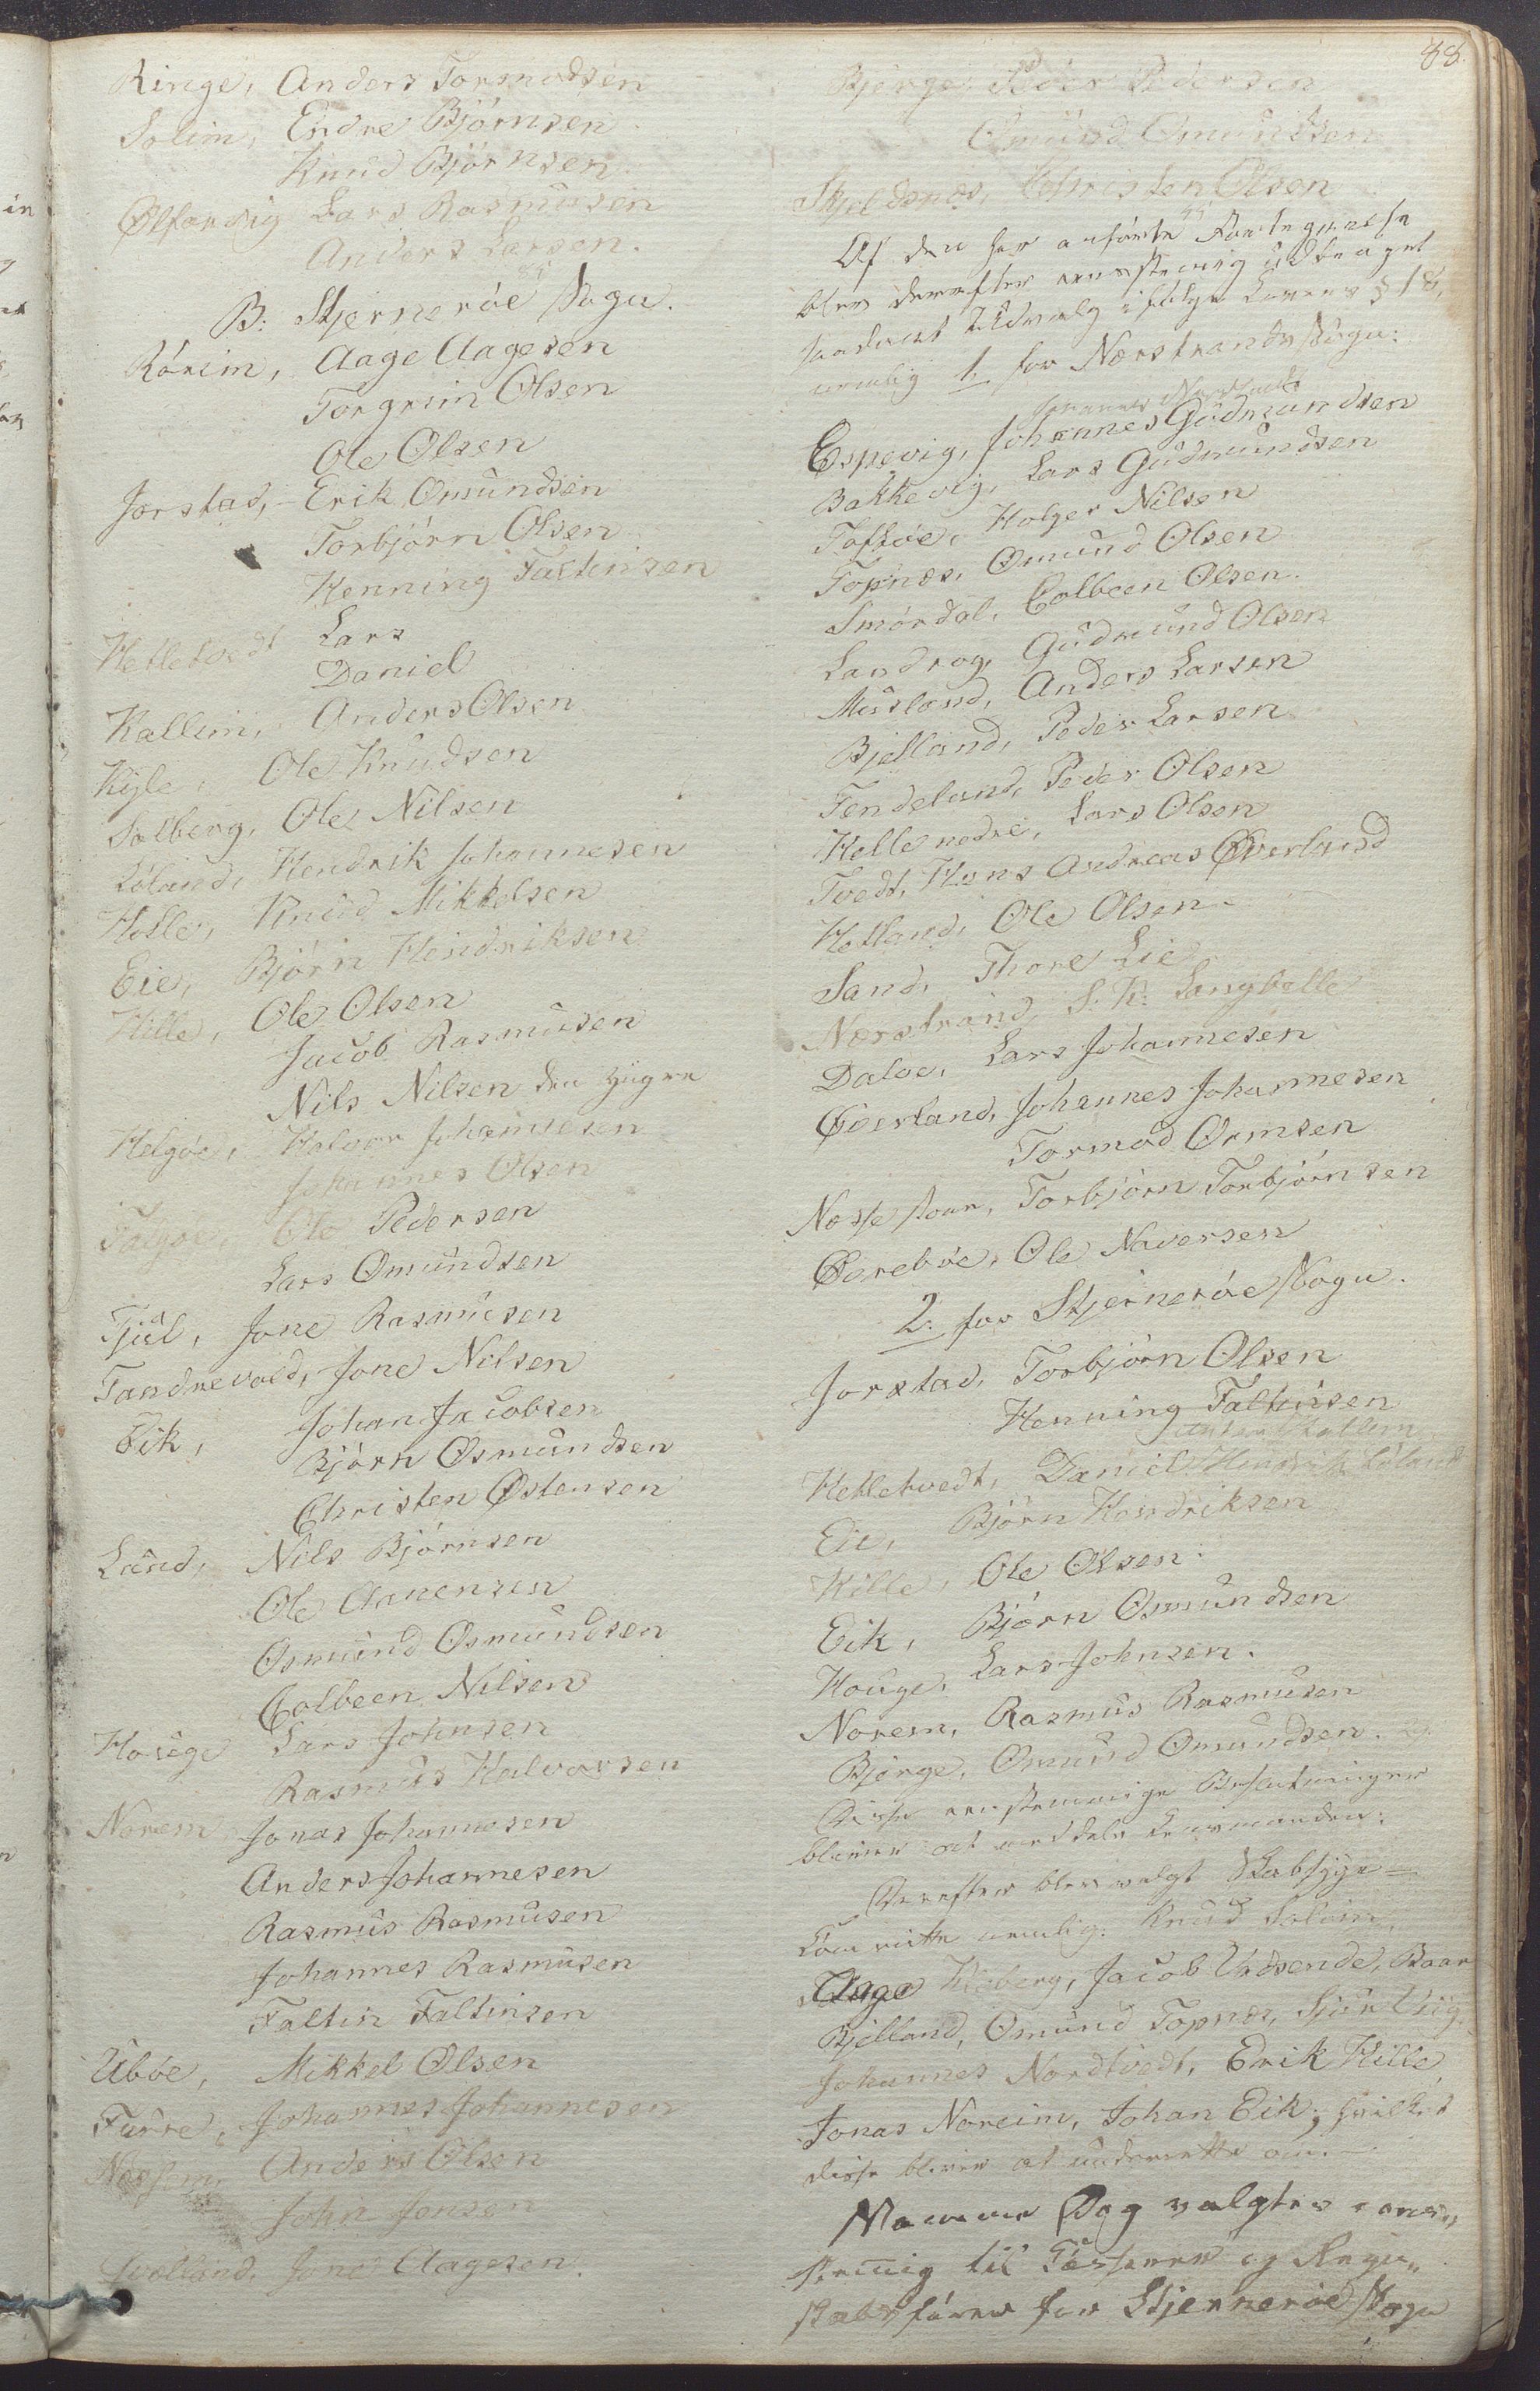 88.
Ringe, Anders Tormodsen
Solim, Endre Bjørnsen
Knud Bjørnsen
Ølfarvig Lars Rasmusen
Anders Larsen.
B: Stjernerøe Sogn.
Rørein, Aage Aagesen
Torgrim Olsen
Ole Olsen
Jorstad, Erik Omundsen
Torbjørn Olsen
Henning Faltinsen
Hetletvedt Lars
Daniel
Kallem, Anders Olsen
Kyle, Ole Knudsen
Solberg, Ole Nilsen
Løland, Hendrik Johannesen
Holle, Knud Mikkelsen
Eie, Bjørn Hendriksen
Hille, Ole Olsen
Jacob Rasmusen
Nils Nilsen den yngre
Helgøe, Halvor Johannesen
Johannes Olsen
Ole Pedersen
Lars Omundsen
Tjul, Jone Rasmusen
Tandrevold, Jone Nilsen
Eik, Johan Jacobsen
Bjørn Osmundsen
Christen Østensen
Lund, Nils Bjørnsen
Ole Aanensen
Osmund Osmundsen
Colbeen Nilsen
Houge Lars Johnsen
Rasmus Halvorsen
Norem Jonas Johannesen
Anders Johannesen
Rasmus Rasmusen
Johannes Rasmusen
Faltin Faltinsen
Ubøe, Mikkel Olsen
Furre, Johannes Johannesen
Næssem, Anders Olsen
John Jonsen
Jone Aagesen.
Bjerge, Peder Pedersen
Omund Omundsen
Skjeldsnæs, Christen Olsen
Af den her anførte Fortegnelse
blev derefter eenstemmig udtaget
saadant Udvalg ifølge Lovens § 18,
nemlig 1. for Nærstrands Sogn:
Johannes Nordtvedt
Espevig, Johannes Gudmundsen
Bakkevig, Lars Gudmundsen
Toftøe, Holger Nilsen
Topnæs, Omund Olsen
Smørdal, Colbeen Olsen.
Landrog, Gudmund Olsen
Musland, Anders Larsen
Bjelland, Peder Larsen
Tendeland, Peder Olsen
Helle nedre, Lars Olsen
Tvedt, Hans Andreas Øverland
Hetland, Ole Olsen
Sand, Thore Lie
Nærstrand, S. K. Langballe
Daløe, Lars Johannesen
Øverland, Johannes Johannesen
Tormod Ormsen
Torbjørn Torbjørnsen
Øvrebøe, Ole Naversen
2. for Stjernerøe Sogn.
Jorstad, Torbjørn Olsen
Henning Faltinsen
Anders Kallem
Hetletvedt, Daniel Hendrik Løland
Eie, Bjørn Hendriksen
Hille, Ole Olsen.
Eik, Bjørn Osmundsen
Houge, Lars Johnsen.
Norem, Rasmus Rasmusen
Bjerge, Omund Omundsen.
Disse eenstemmige Beslutninger
bliver at meddele Lensmanden.
Derefter blev valgt
nemlig: Knud Soleim,
Aage Kioberg, Jacob Vadsende, Baar
Bjelland, Omund Topnæs, Sjur Vig,
Johannes Nordtvedt, Erik Hille
Jonas Noreim, Johan Eik, hvilket
disse bliver at underrette om.
Samme Dag valgtes eens
stemmig til Kasserer og Regn
skabsfører for Stjernerøe Sogn